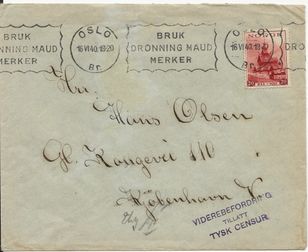 OSLO
16 VI 40.19-20
Br.
BRUK
DRONNING MAUD
MERKER
OSLO
16 VI 40.19-20
Br.
BRUK
DRONNING MAUD
MERKER
NORGE
20
Hr.
Hans Olsen
Gl. Kongevei 110
København V.
VIDEREBEFORDRING
TILLATT
TYSK CENSUR